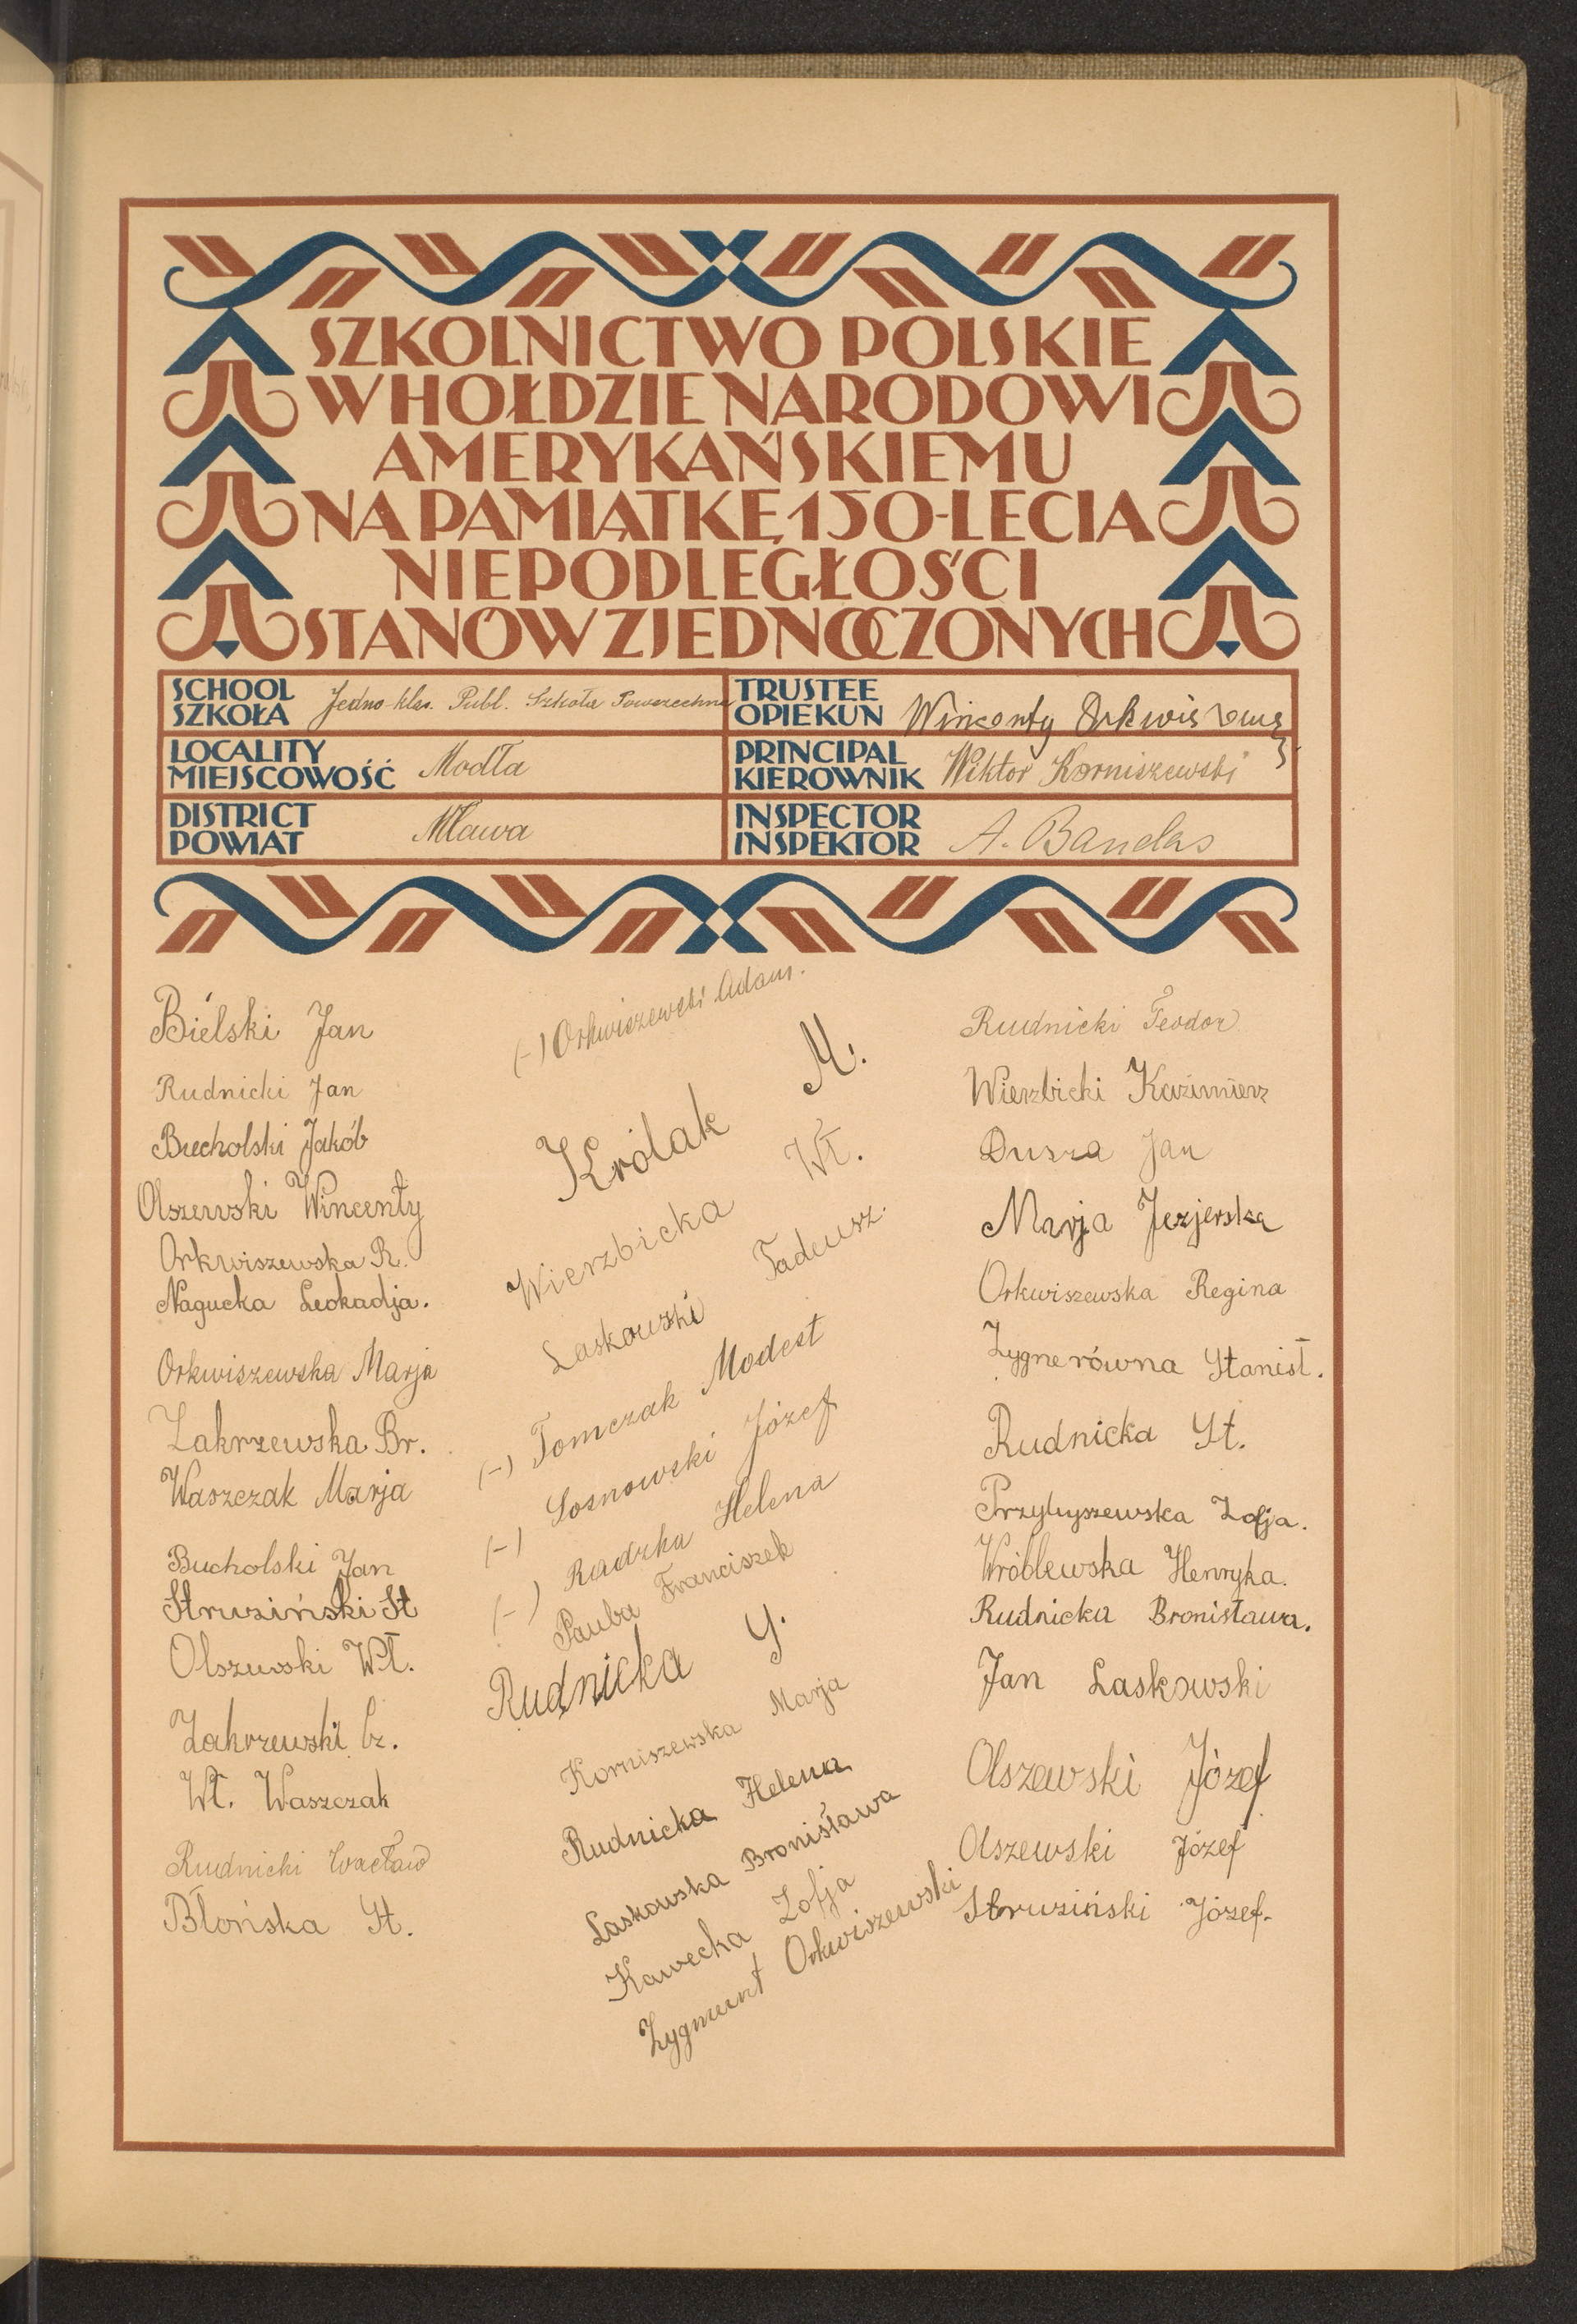 SZKOLNICTWO POLSKIE
W HOŁDZIE NARODOWI
AMERYKAŃSKIEMU
NA PAMIĄTKĘ 150-LECIA
NIEPODLEGŁOŚCI
STANÓW ZJEDNOCZONYCH
SCHOOL
SZKOŁA
Jedno-klas. Publ. Szkoła Powszechna
TRUSTEE
OPIEKUN
Wincenty
LOCALITY
MIEJSCOWOŚĆ
Modła
PRINCIPAL
KIEROWNIK
Wiktor Korniszewski
DISTRICT
POWIAT
Mława
INSPECTOR
INSPEKTOR
A.
Bielski Jan
Rudnicki Jan
Bucholski Jakób
Olszewski Wincenty
Orkwiszewska R.
Nagucka Leokadja.
Orkwiszewska Marja
Zakrzewska Br.
Waszczak Marja
Bucholski Jan
Struziński St
Olszewski Wł.
Zakrzewski Cz.
Wł. Waszczak
Rudnicki Wacław
Błońska St.
(-) Orkwiszewski Adam.
Królak M.
Wierzbicka Wł.
Laskowski Tadeusz.
(-) Tomczak Modest
(-) Sosnowski Józef
(-) Radzka Helena
Pauba Franciszek
Rudnicka S.
Korniszewska Marja
Rudnicka Helena
Laskowska Bronisława
Kawecka Zofja
Zygmunt Orkwiszewski
Rudnicki Teodor
Wierzbicki Kazimierz
Dusza Jan
Marja Jezjerska
Orkwiszewska Regina
Zygnerówna Stanisł.
Rudnicka St.
Przybyszewska Zofja.
Wróblewska Henryka.
Rudnicka Bronisława.
Jan Laskowski
Olszewski Józef
Olszewski Józef
Struziński Józef.